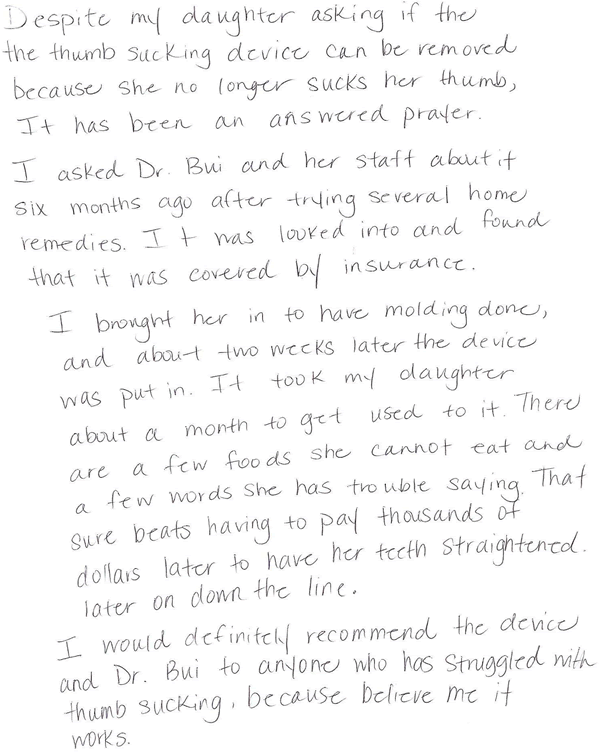 Despite my daughter asking if the
the thumb sucking device can be removed
because she no longer sucks her thumb,
It has been an answered prayer.
I asked Dr. Bui and her staff about it
six months ago after trying several home
remedies. It was looked into and found
that it was covered by insurance.
I brought her in to have molding done,
and about two weeks later the device
was put in. It took my daughter
about a month to get used to it. There
are a few foods she cannot eat and
a few words she has trouble saying. That
sure beats having to pay thousands of
dollars later to have her teeth straightened.
later on down the line.
I would definitely recommend the device
and Dr. Bui to anyone who has struggled with
thumb sucking, because believe me it
works.